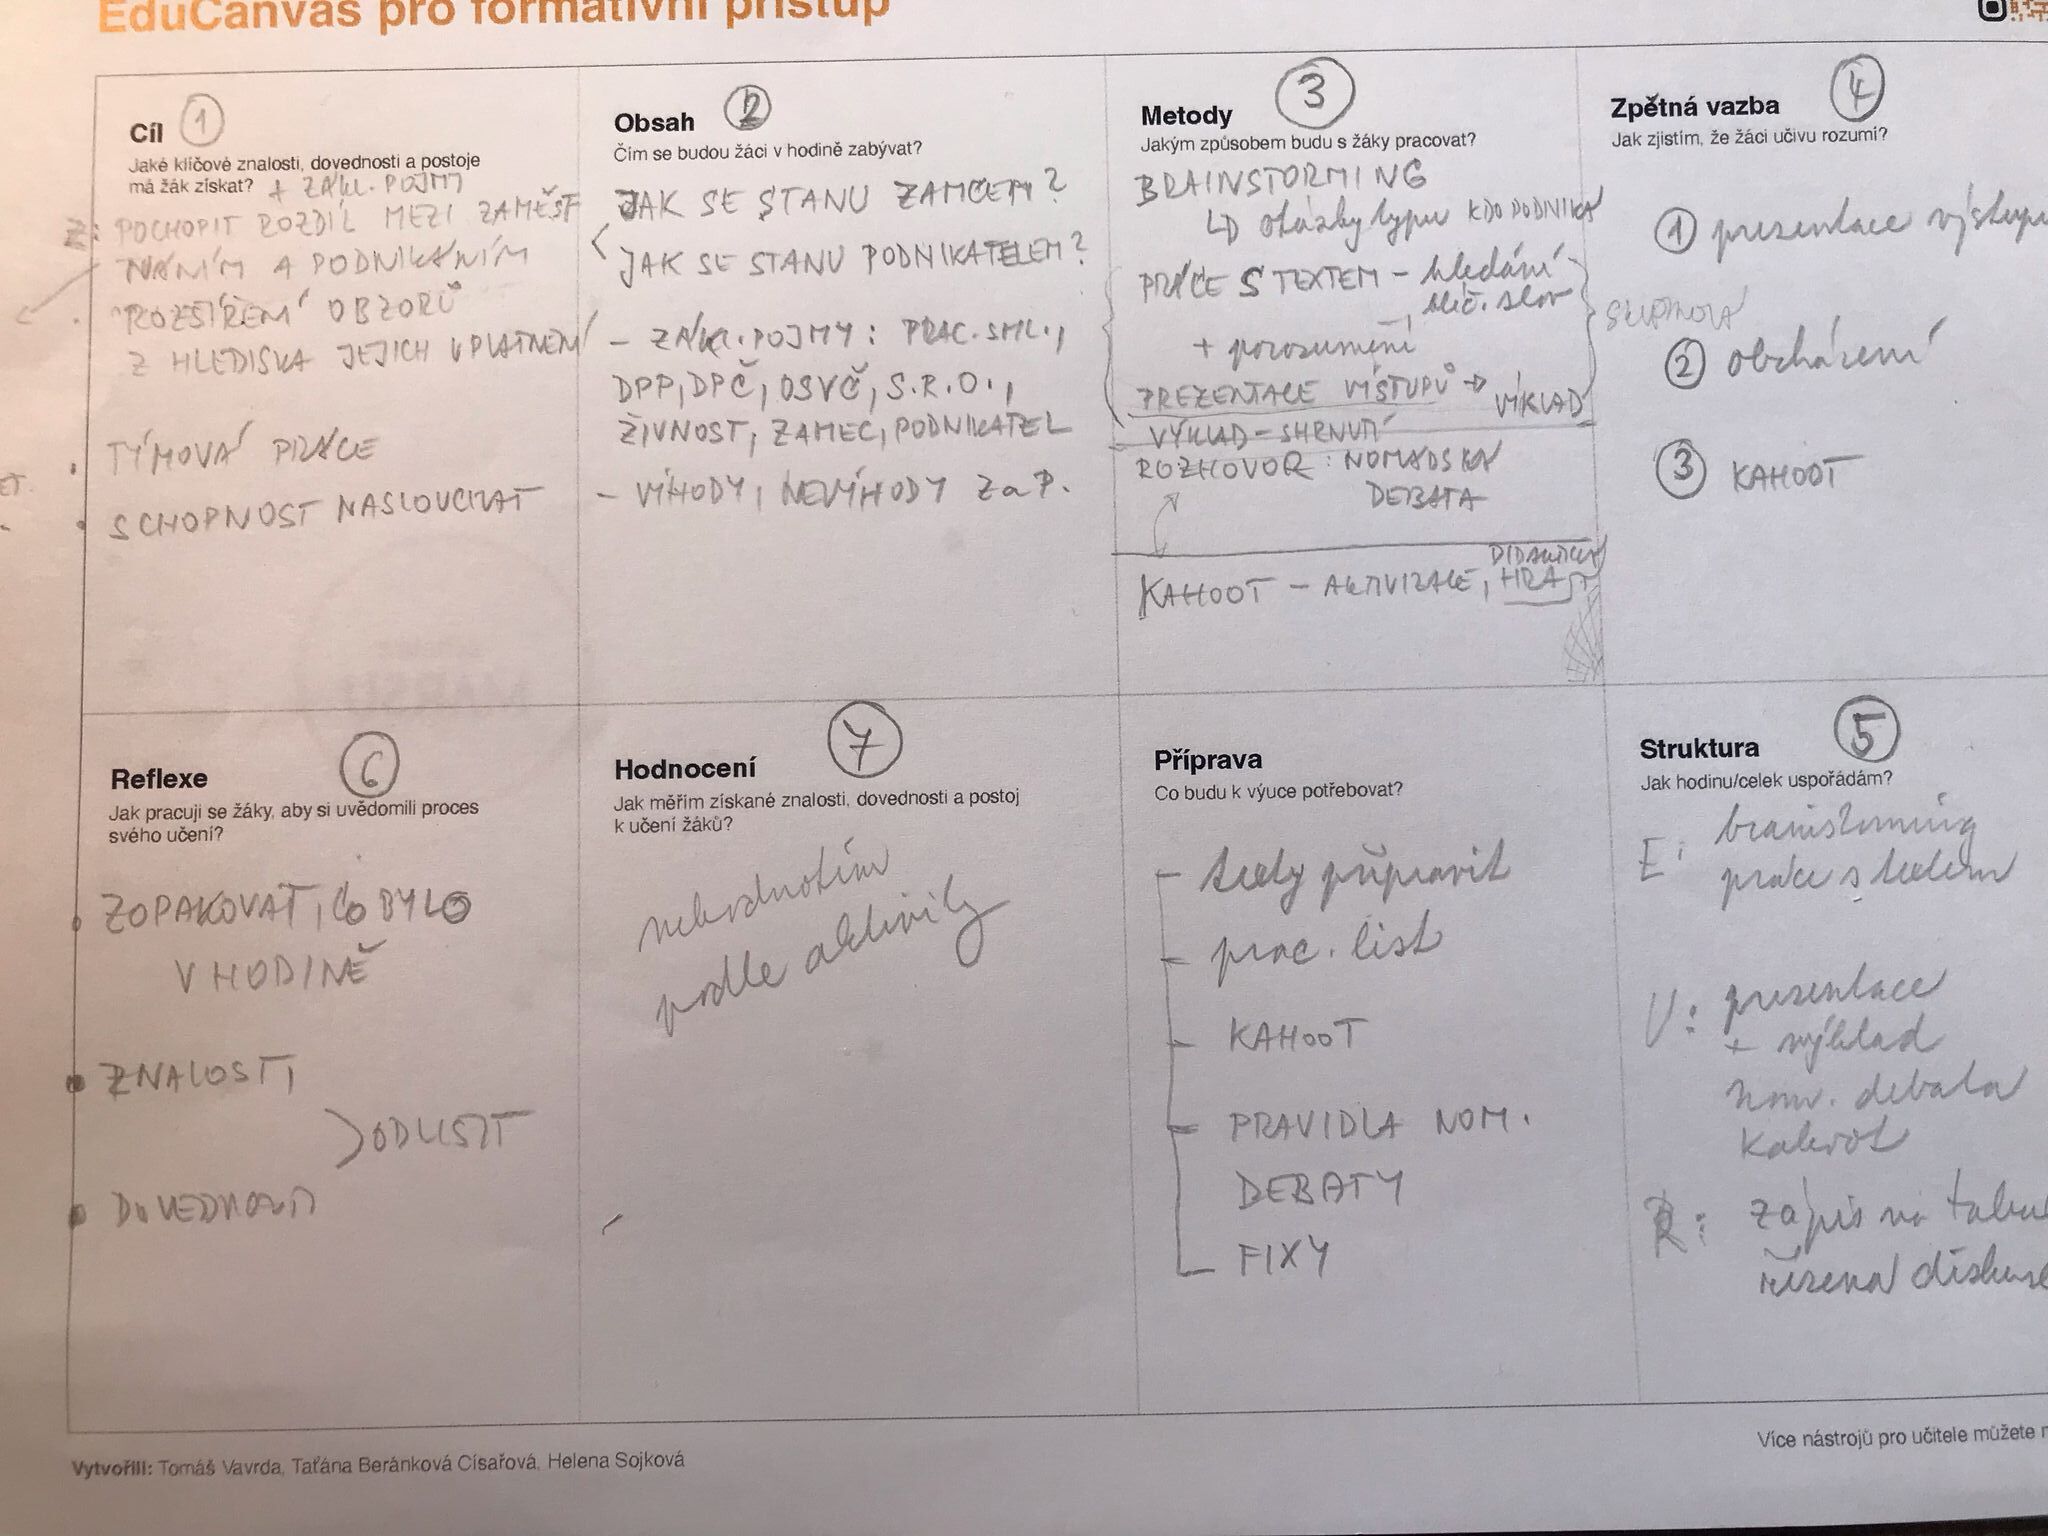 EduCanvas pro formativní přístup
Cíl 1
Jaké klíčové znalosti, dovednosti a postoje
má žák získat? + ZÁKL. POJMY
Z: POCHOPIT ROZDÍL MEZI ZAMĚST
NÁNÍM A PODNIKÁNÍM
ROZŠÍŘENÍ OBZORŮ
Z HLEDISKA JEJICH UPLATNĚNÍ
TÝMOVÁ PRÁCE
SCHOPNOST NASLOUCHAT
Obsah 2
Čím se budou žáci v hodině zabývat?
JAK SE STANU ZAMCEM?
JAK SE STANU PODNIKATELEM?
- ZÁKL. POJMY: PRAC. SML.,
DPP, DPČ, OSVČ, S.R.O.,
ŽIVNOST, ZAMEC, PODNIKATEL
- VÝHODY, NEVÝHODY Z a P.
Metody 3
Jakým způsobem budu s žáky pracovat?
BRAINSTORMING
otázky typu KDO PODNIKÁ
PRÁCE S TEXTEM - hledání
klíč. slov
+ porozumění
PREZENTACE VÝSTUPŮ → VÝKLAD
VÝKLAD - SHRNUTÍ
ROZHOVOR: NOMÁDSKÁ
DEBATA
DIDAKTICKÁ
KAHOOT - AKTIVIZACE, HRA
Zpětná vazba 4
Jak zjistím, že žáci učivu rozumí?
1 prezentace výstupů
SKUPINOVÁ
2 obcházení
3 KAHOOT
Reflexe 6
Jak pracuji se žáky, aby si uvědomili proces
svého učení?
ZOPAKOVAT, CO BYLO
V HODINĚ
ZNALOSTI
ODLIŠIT
DOVEDNOSTI
Hodnocení 7
Jak měřím získané znalosti, dovednosti a postoj
k učení žáků?
nehodnotím
podle aktivity
Příprava
Co budu k výuce potřebovat?
- texty připravit
- prac. list
- KAHOOT
- PRAVIDLA NOM.
DEBATY
- FIXY
Struktura 5
Jak hodinu/celek uspořádám?
E: brainstorming
práce s textem
U: prezentace
+ výklad
nom. debata
kahoot
R: zápis na tabul
řízená diskuse
Vytvořili: Tomáš Vavrda, Taťána Beránková Císařová, Helena Sojková
Více nástrojů pro učitele můžete n